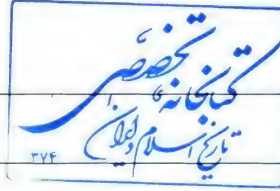 کتابخانه تخصصی
تاریخ اسلام و ایران
۳۷۴